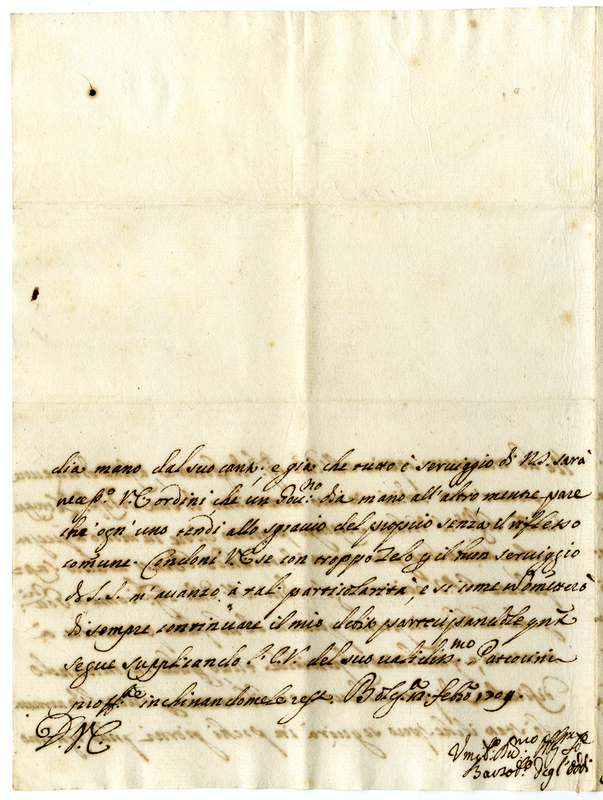 dia mano dal suo canto. e già che tutto è serviggio di N.S. sarà
necess.º V.E. ordini che un Gov.no dia mano all'altro mentre pare
che ogn'uno tendi allo sgravio del proprio senza il riflesso
comune. Condoni V.E. se con troppo zelo il buon serviggio
di S.S. m'avanzo à tal particolarità, e si come
di sempre continuare il mio debito partecipandole
segue supplicando l'E.V. del suo validiss.mo Patrocinio
proff.te inchinandomele resto. feb.ro 1709.
D.V.E.
Umil.º
degl'Oddi